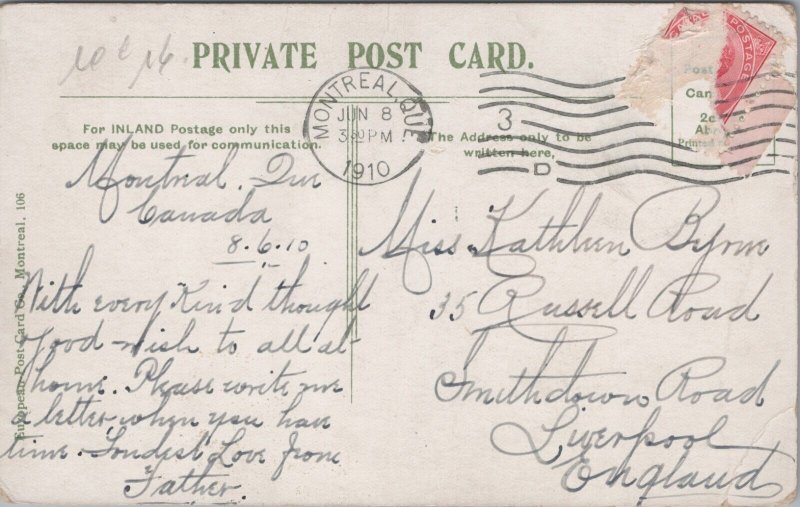 10¢ 16
PRIVATE POST CARD.
POSTAGE
Post
Can
2c
Printed
MONTREAL, QUE.
JUN 8
3 30 PM
1910
3
D
For INLAND Postage only this
space may be used for communication.
The Address only to be
written here,
European Post Card Co., Montreal, 106
Montreal. Que
Canada
8.6.10
With every kind thought
good wish to all at
home. Please write me
a letter when you have
time. Fondist Love from
Father.
Miss Kathleen Byrne
35 Russell Road
Smithdown Road
Liverpool
England